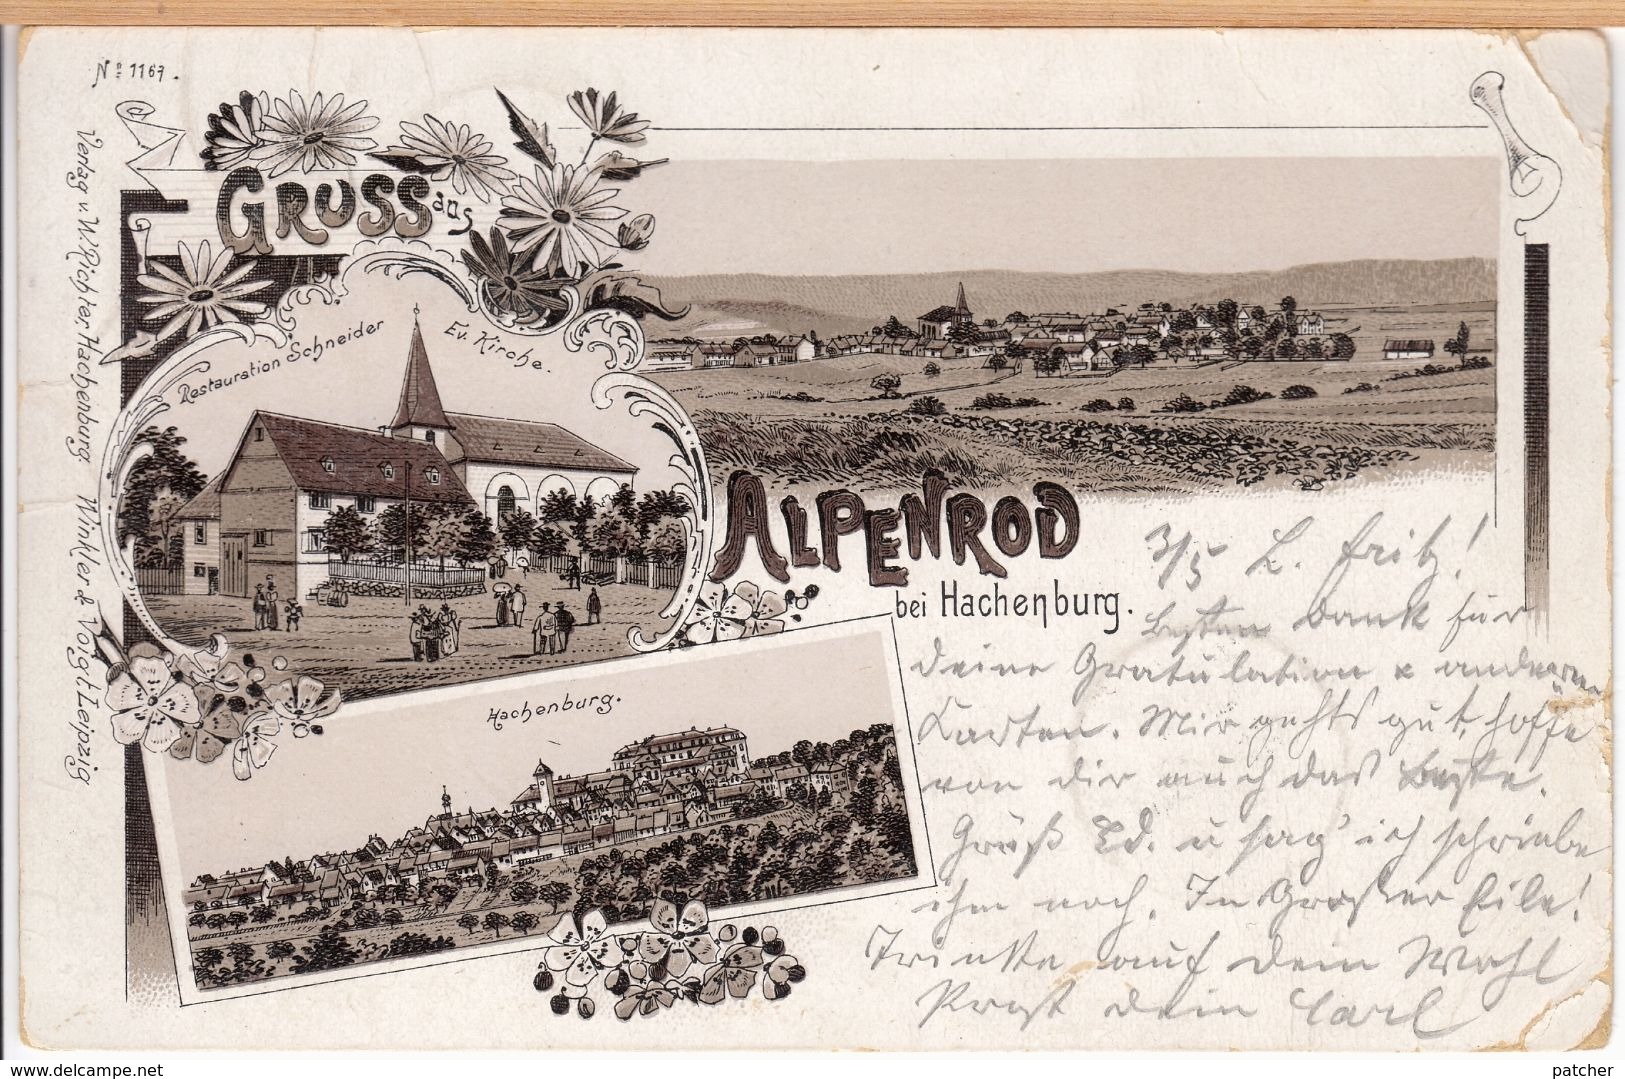 No 1167.
Verlag v. W. Richter, Hachenburg. Winkler & Voigt, Leipzig
GRUSS aus
Restauration Schneider
Ev. Kirche.
ALPENROD
bei Hachenburg.
Hachenburg.
3/5 L. Fritz!
Besten Dank für
deine Gratulation & anderen
Karten. Mir gehts gut, hoffe
von dir auch das Beste.
Grüß Ed. u sag' ich schriebe
ihm noch. In Großer Eile!
Trinke auf dein Wohl
Prost dein Carl
www.delcampe.net
patcher